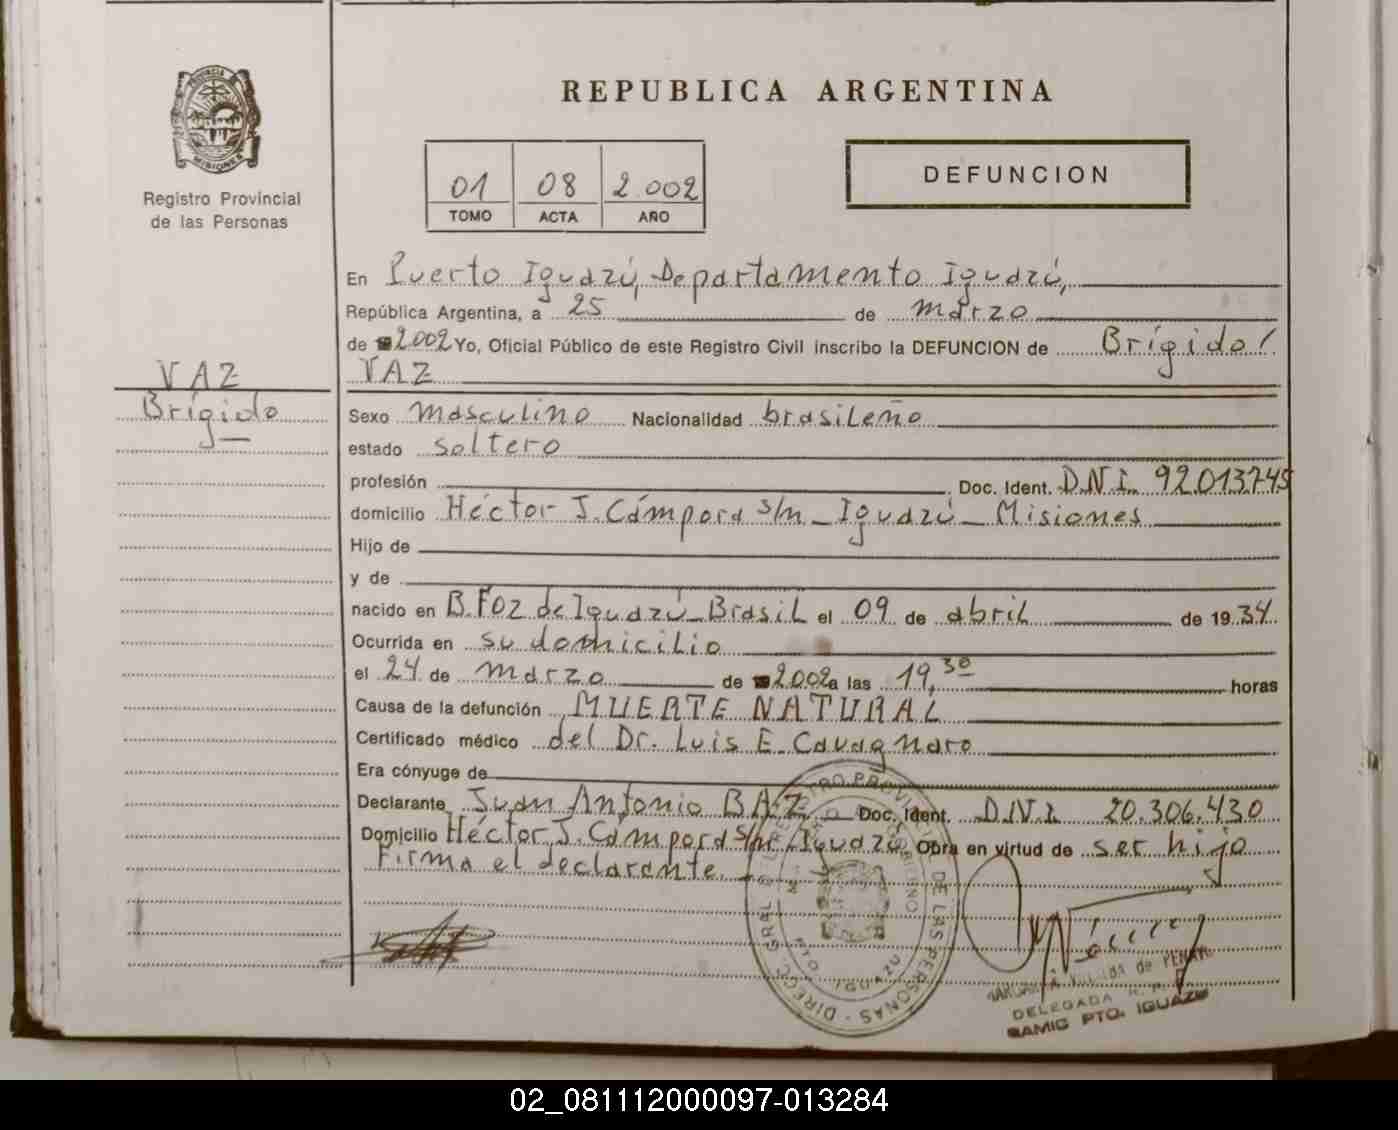 PROVINCIA
MISIONES
Registro Provincial
de las Personas
REPUBLICA ARGENTINA
01 08 2.002
TOMO ACTA AÑO
DEFUNCION
En Puerto Iguazú, Departamento Iguazú,
República Argentina, a 25 de marzo
de 2002 Yo, Oficial Público de este Registro Civil inscribo la DEFUNCION de Brígido/
VAZ
VAZ
Brígido
Sexo masculino Nacionalidad brasileño
estado soltero
profesión Doc. Ident. D.N.I. 92013745
domicilio Héctor J. Cámpora s/n - Iguazú - Misiones
Hijo de
y de
nacido en B. Foz de Iguazú - Brasil el 09 de abril de 1934
Ocurrida en su domicilio
el 24 de marzo de 2002 a las 19,30 horas
Causa de la defunción MUERTE NATURAL
Certificado médico del Dr. Luis E. Cavagnaro
Era cónyuge de
Declarante Juan Antonio BAZ Doc. Ident. D.N.I. 20.306.430
Domicilio Héctor J. Cámpora s/n - Iguazú Obra en virtud de ser hijo
Firma el declarante.
DIRECC. GRAL. REGISTRO PROVINCIAL DE LAS PERSONAS
PTO. IGUAZU
de
DELEGADA
RAMIC PTO. IGUAZU
02_081112000097-013284